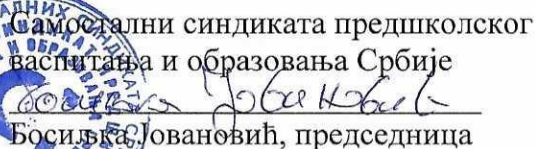 Самостални синдиката предшколског
васпитања и образовања Србије
Босиљка Јовановић, председница